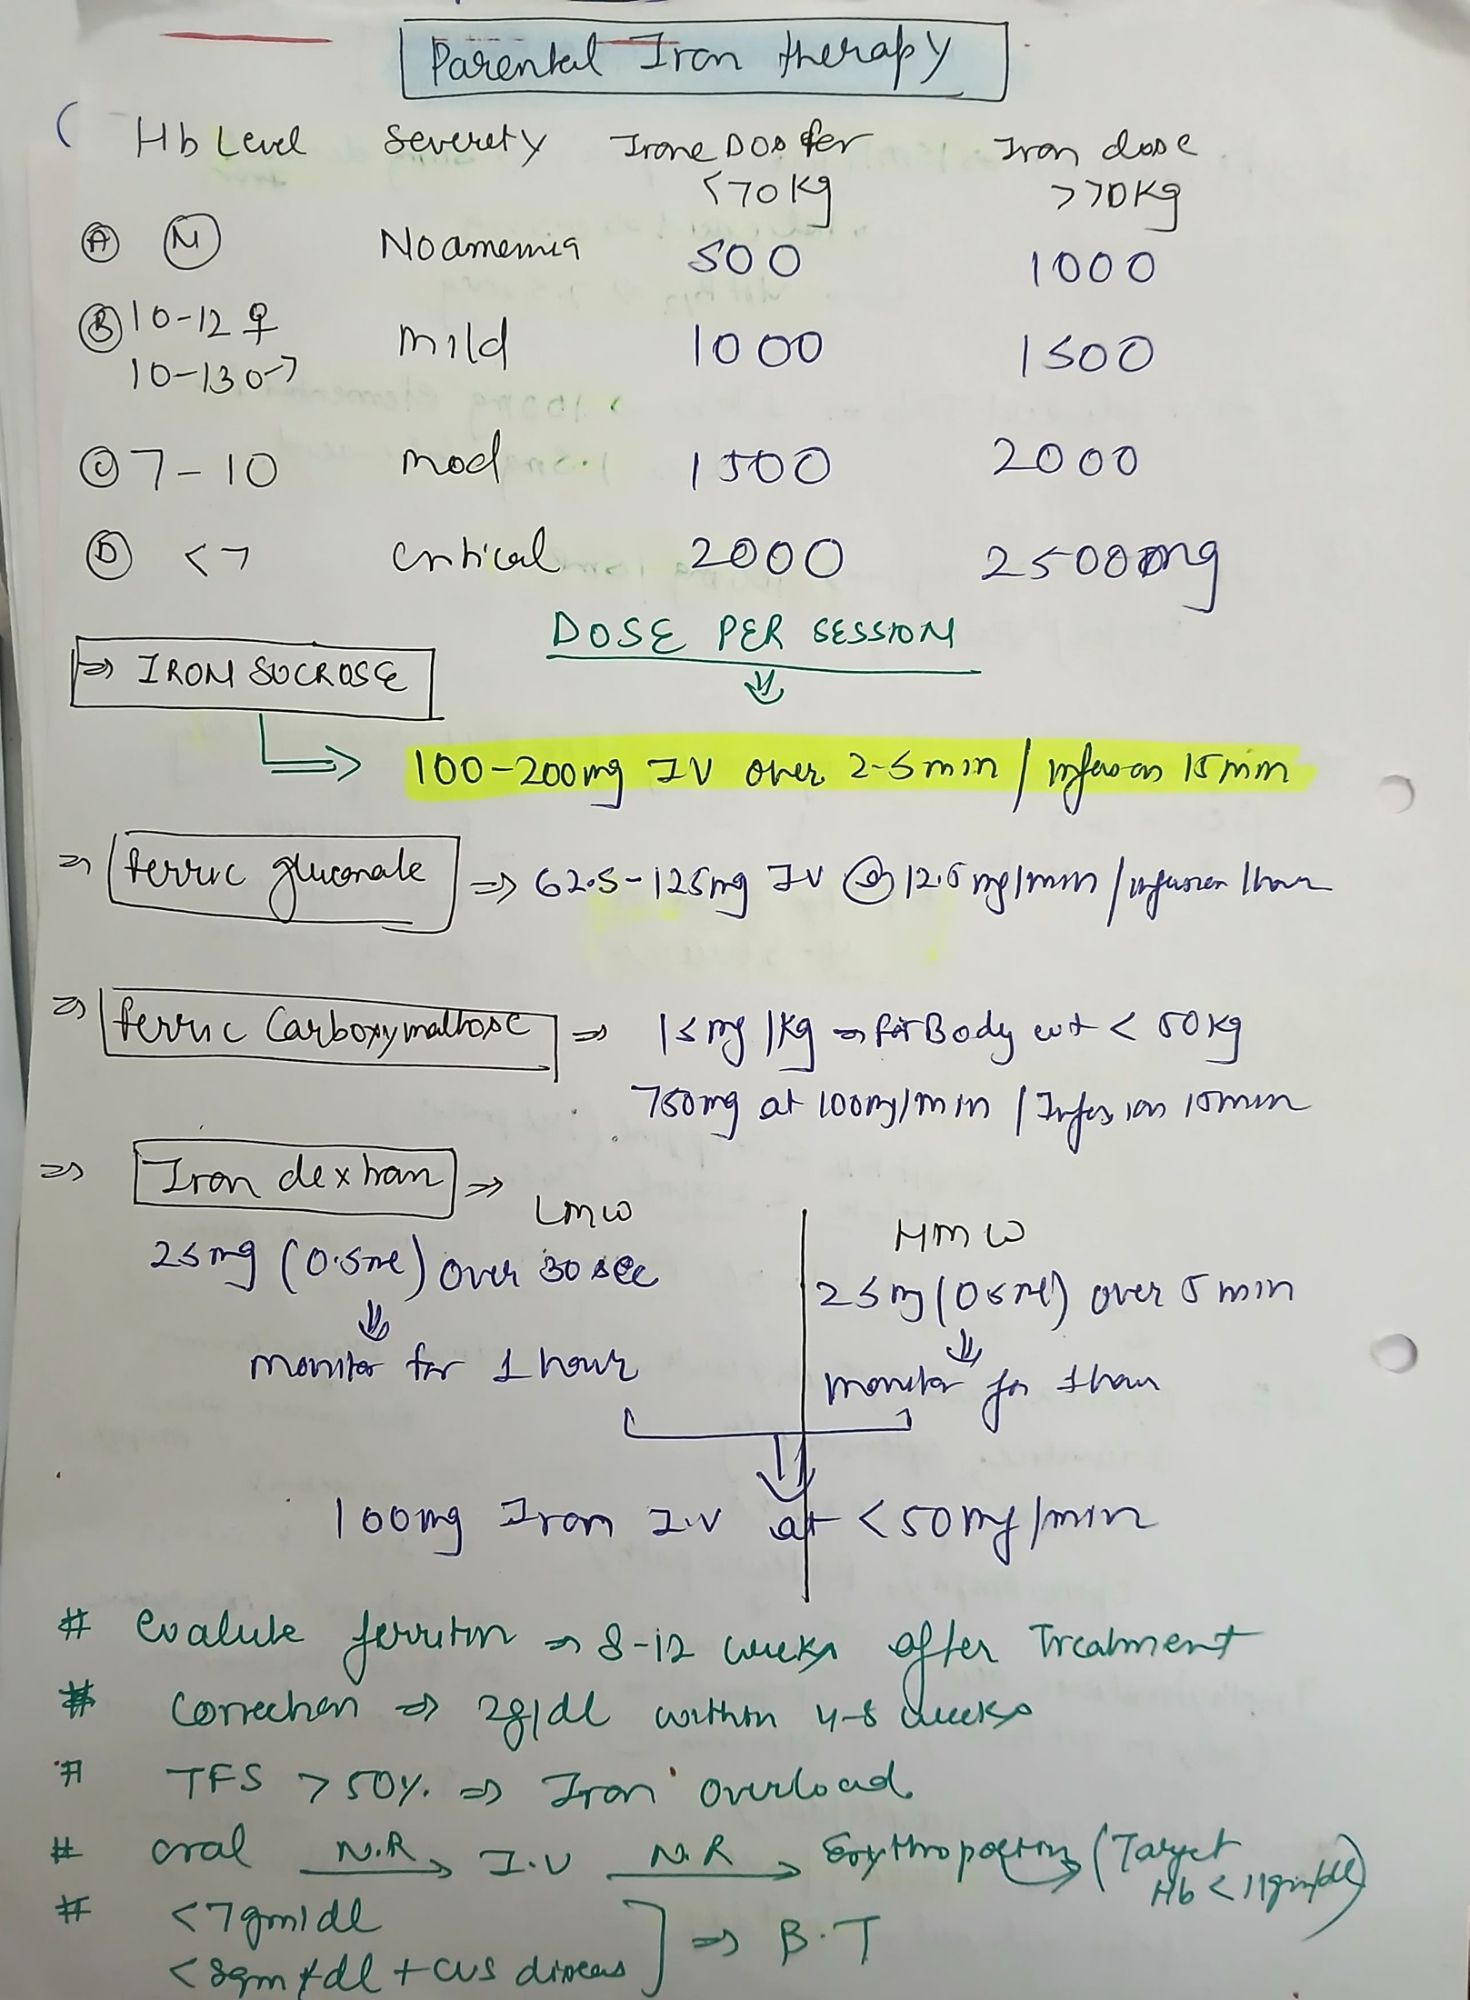 Parental Iron therapy
Hb Level Severety Irone Dos for <70 Kg Iron dose >70Kg
Ⓐ Ⓝ No anemia 500 1000
Ⓑ 10-12 ♀ mild 1000 1500
10-13 ♂
Ⓒ 7-10 mod 1500 2000
Ⓓ <7 critical 2000 2500mg
DOSE PER SESSION
⇒ IRON SUCROSE
100-200mg IV over 2-5min / infusion 15min
⇒ ferric gluconate ⇒ 62.5-125mg IV @ 12.5mg/min / infusion 1hour
⇒ ferric Carboxymaltose ⇒ 15mg/Kg ⇒ for Body wt < 50Kg
750mg at 100mg/min / Infusion 15min
⇒ Iron dextran ⇒
LMW HMW
25mg (0.5ml) over 30 sec 25mg (0.5ml) over 5min
⇓ ⇓
monitor for 1 hour monitor for 1hour
100mg Iron I.V at <50mg/min
# evalute ferritin ⇒ 8-12 weeks after Treatment
# Correction ⇒ 2g/dl within 4-8 weeks
# TFS >50% ⇒ Iron overload
# oral N.R → I.V N.R → Erythropoetin (Target Hb <11gm/dl)
# <7gm/dl
<8gm/dl + CVS diseas ] ⇒ B.T